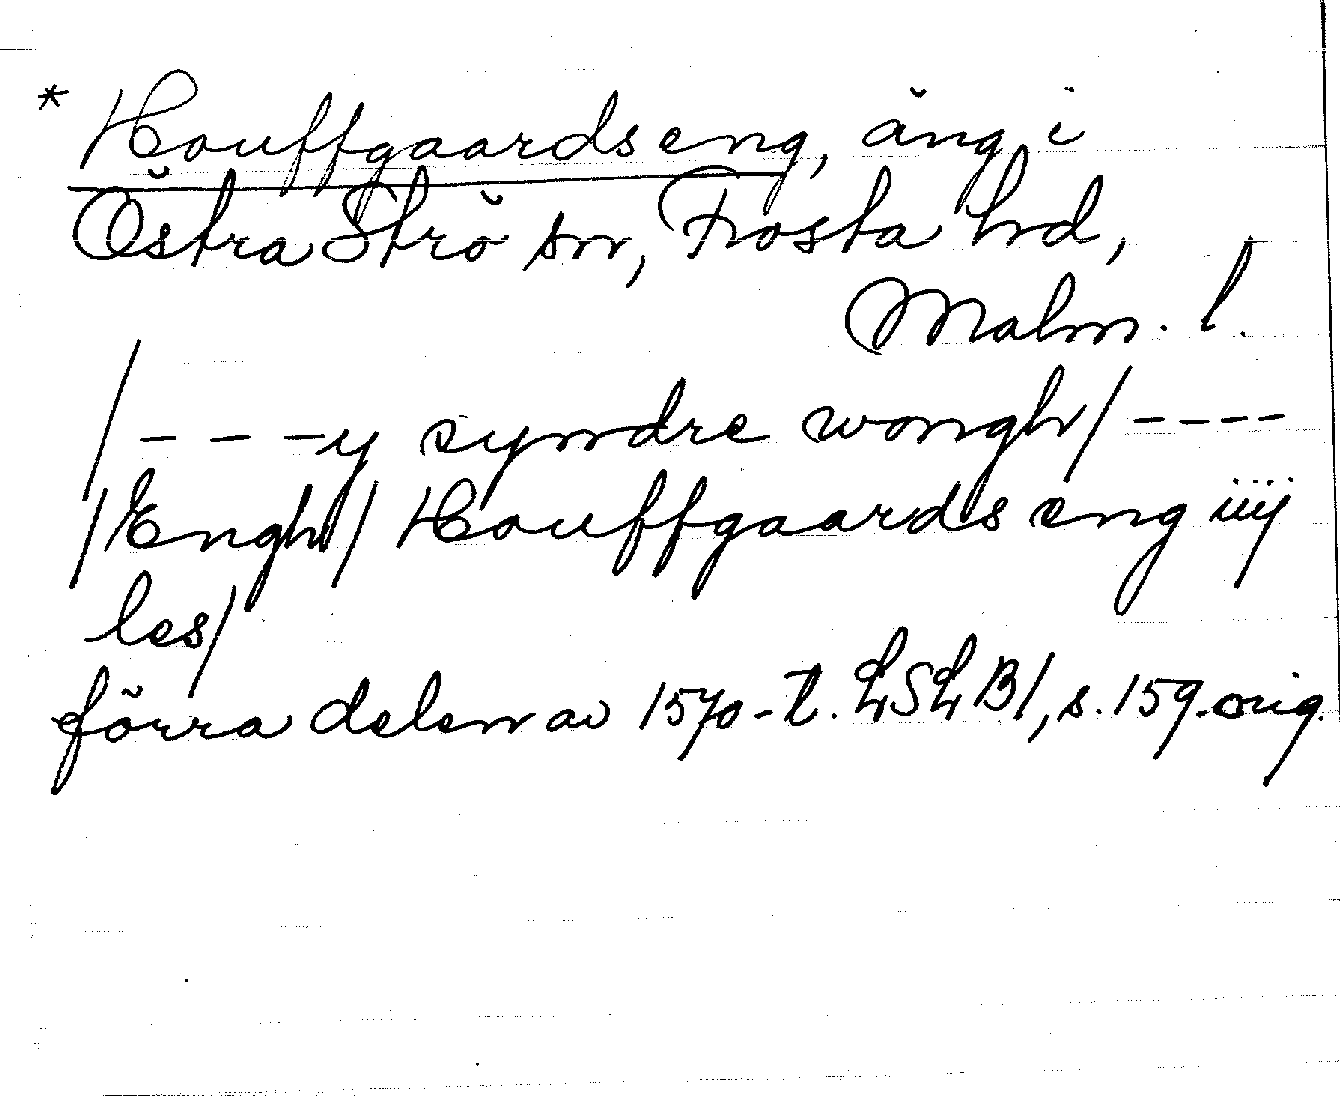 * Houffgaards eng, äng i
Östra Strö sn, Frosta hd,
Malm. l.
/ - - - y syndre wongh / - - - -
/ Engh / Houffgaards eng iiij
les /
förra delen av 1570-t. LSLB1, s. 159. orig.